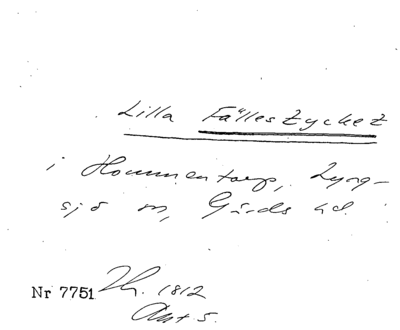 Lilla Fällestycket
i Hommentorp, Lyng-
sjö sn, Gärds hd.
Nr 7751 Th. 1812
Akt 5.